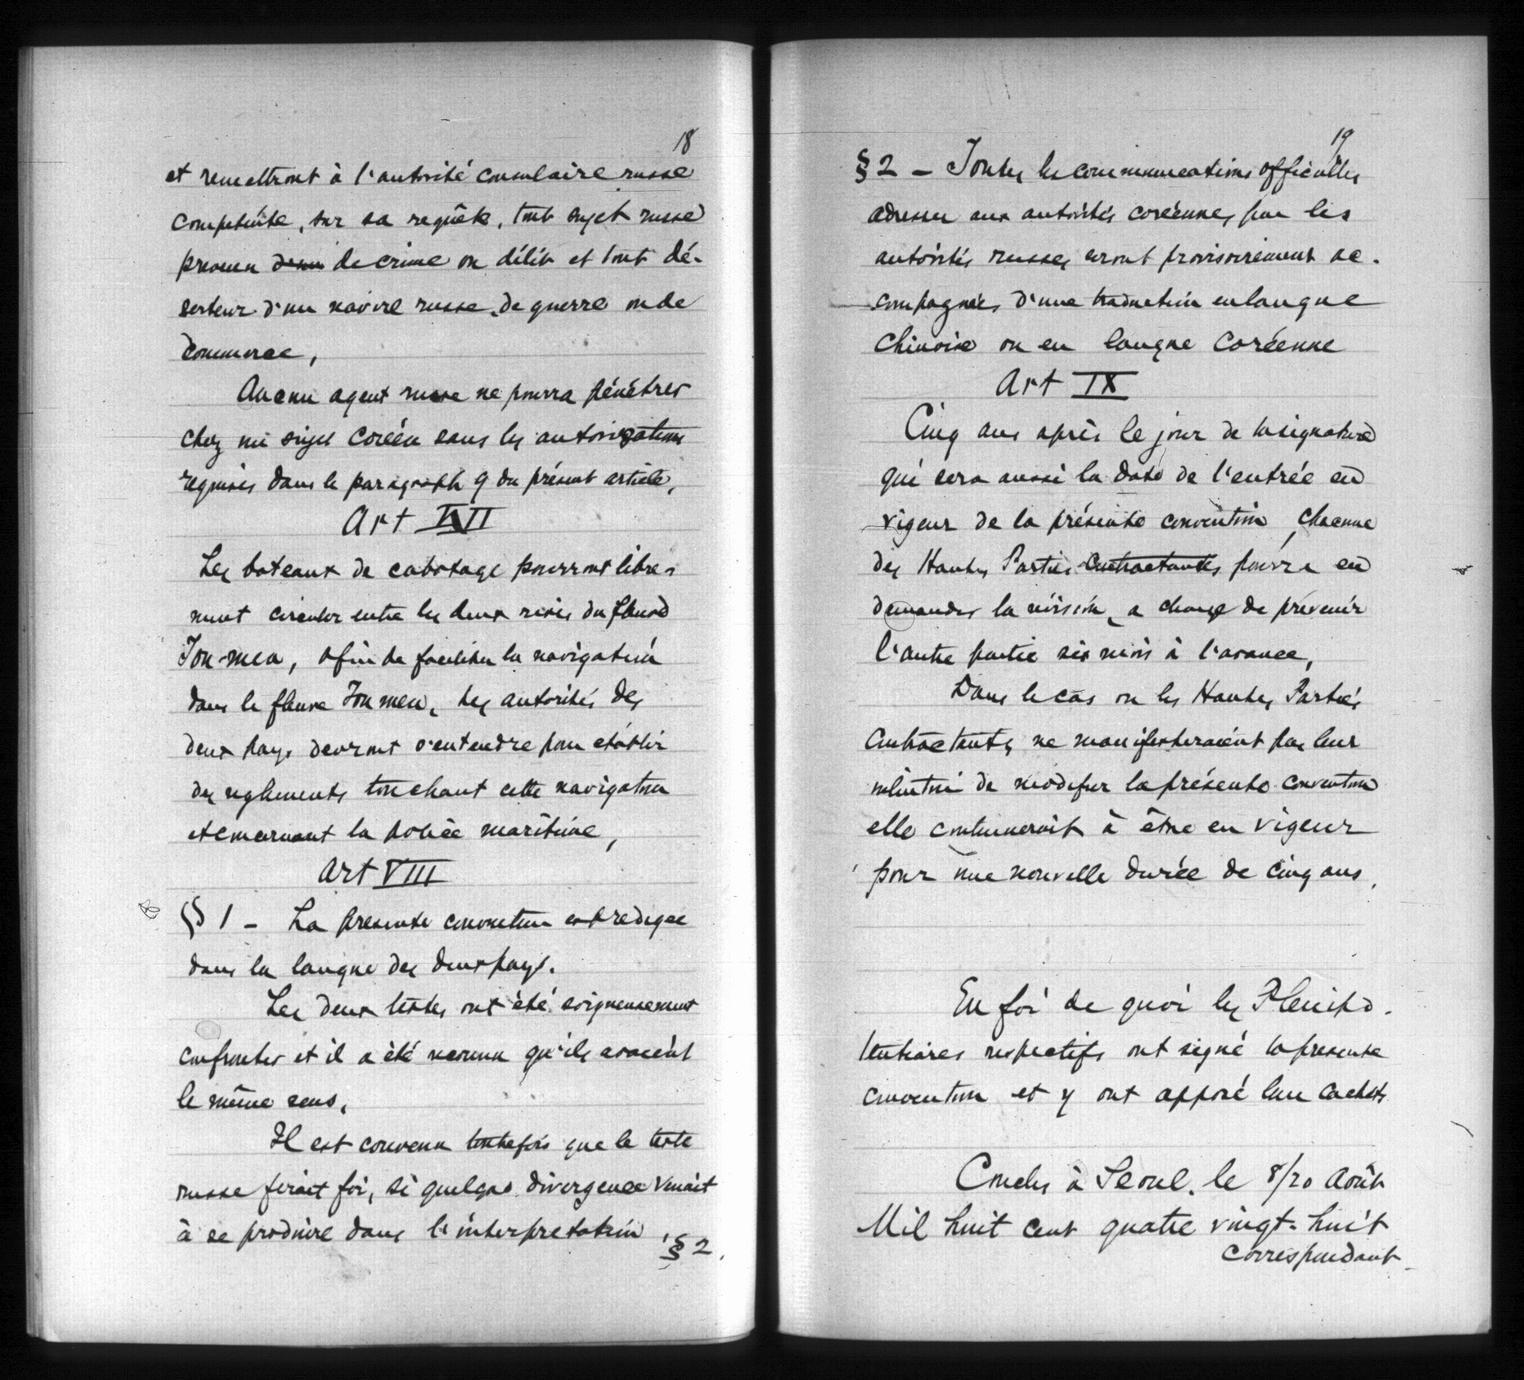 18
et remettront à l'autorité consulaire russe
compétente, sur sa requête, tout sujet russe
prevenu de crime ou délit et tout dé-
serteur d'un navire russe de guerre ou de
commerce,
Aucun agent russe ne pourra pénétrer
chez un sujet Coréen sans les autorisations
requises dans le paragraph 9 du présent article,
Art VII
Les bateaux de cabotage pourront libre-
ment circuler entre les deux rives du fleuve
Tou-men, afin de faciliter la navigation
dans le fleuve Tou men, les autorités des
deux pays devront s'entendre pour établir
des reglements touchant cette navigation
et concernant la police maritime,
Art VIII
§ 1 - La presente convention est redigee
dans la langue des deux pays.
Les deux textes ont été soigneusement
confrontés et il a été reconnu qu'ils avaient
le même sens,
Il est convenu toutefois que le texte
russe ferait foi, si quelque divergence venait
à se produire dans l'interpretation
§ 2.
19
§ 2 - Toutes les communications officielles
adressées aux autorités coréennes par les
autorités russes seront provisoirement ac-
compagnées d'une traduction en langue
Chinoise ou en langue Coréenne
Art IX
Cinq ans après le jour de la signature
qui sera aussi la date de l'entrée en
vigeur de la présente convention, chacune
des Hautes Parties Contractantes pourra en
demander la révision, a charge de prévenir
l'autre partie six mois à l'avance,
Dans le cas ou les Hautes Parties
Contractantes ne manifesteraient pas leur
intention de modifier la présente convention
elle continuerait à être en vigeur
pour une nouvelle durée de cinq ans.
En foi de quoi les Plenipo-
tentiaires respectifs ont signé la presente
convention et y ont apposé leur cachets
Conclu à Seoul. le 8/20 Août
Mil huit cent quatre vingt-huit
correspondant